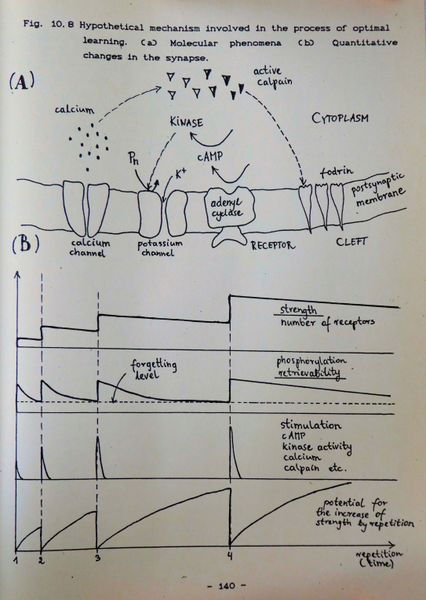 Fig. 10.8 Hypothetical mechanism involved in the process of optimal
learning. (a) Molecular phenomena (b) Quantitative
changes in the synapse.
(A)
active
calpain
calcium
KINASE
CYTOPLASM
Pn
K+
cAMP
fodrin
postsynaptic
membrane
adenyl
cyclase
calcium
channel
potassium
channel
RECEPTOR
CLEFT
(B)
strength
number of receptors
phosphorylation
retrievability
forgetting
level
stimulation
cAMP
kinase activity
calcium
calpain etc.
potential for
the increase of
strength by repetition
1 2 3 4
repetition
(time)
- 140 -